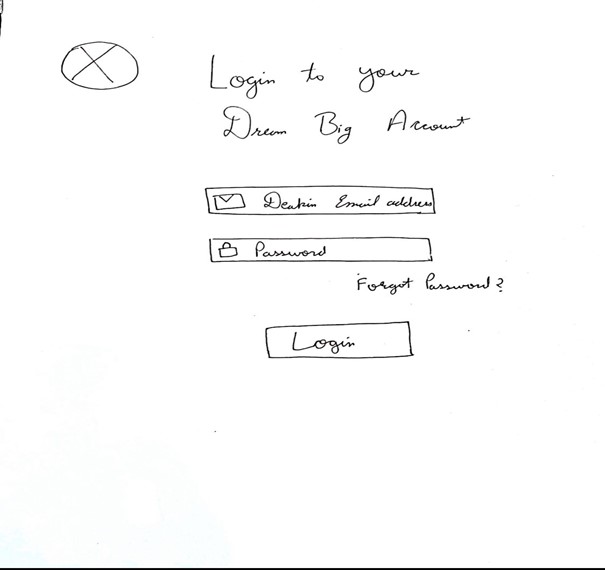 Login to your
Dream Big Account
Deakin Email address
Password
Forgot Password?
Login